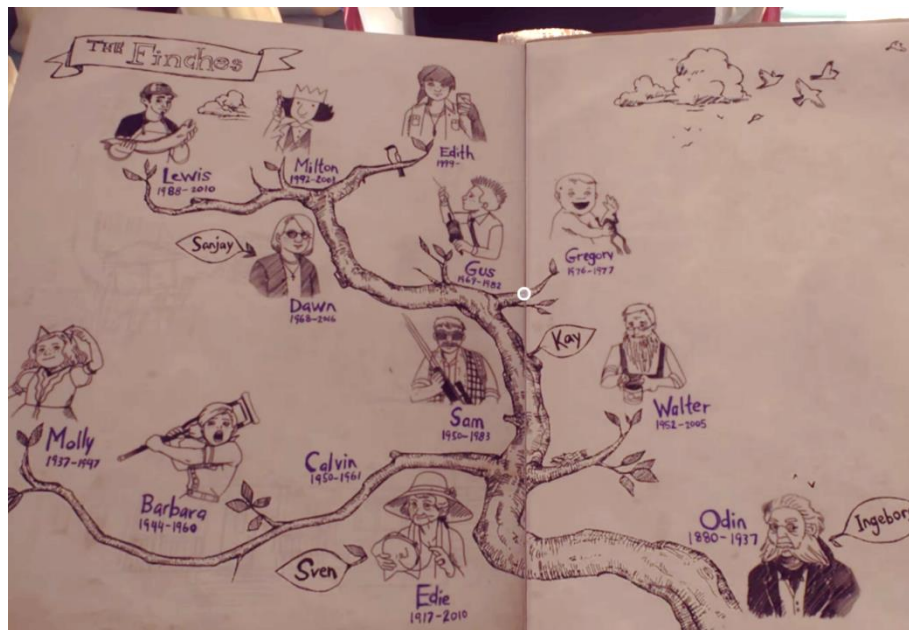 THE Finches
Lewis
1988-2010
Milton
1992-2003
Edith
1999-
Sanjay
Dawn
1968-2016
Gus
1969-1982
Gregory
1976-1977
Kay
Sam
1950-1983
Walter
1952-2005
Molly
1937-1947
Barbara
1944-1960
Calvin
1950-1961
Sven
Edie
1917-2010
Odin
1880-1937
Ingebor